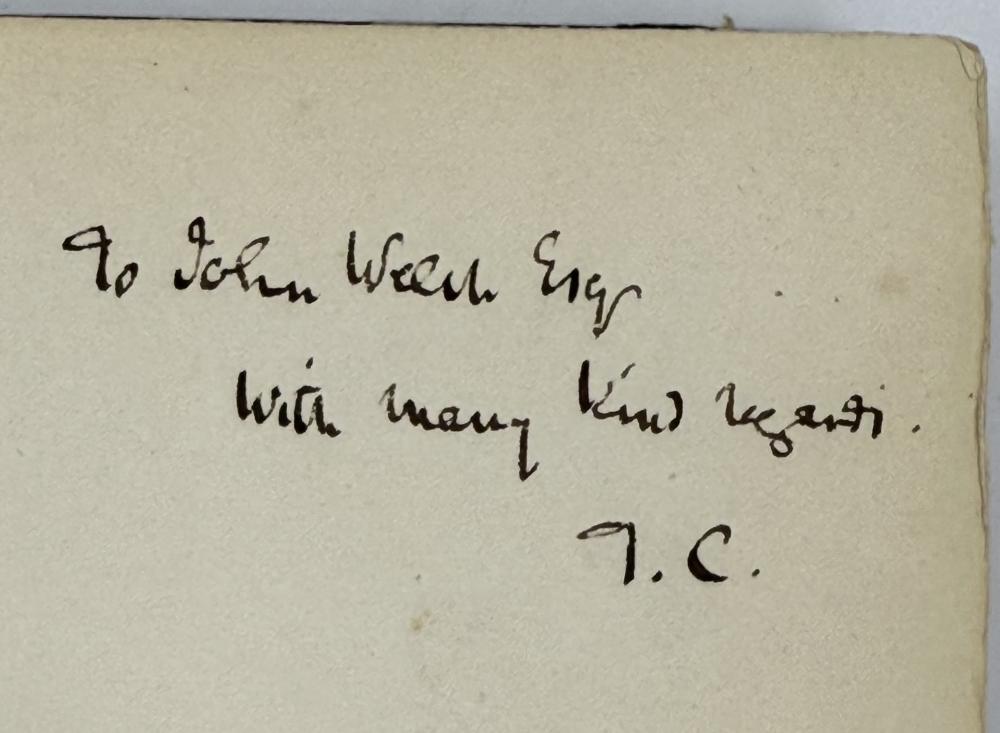 To John Welch Esq
With many kind regards.
T. C.